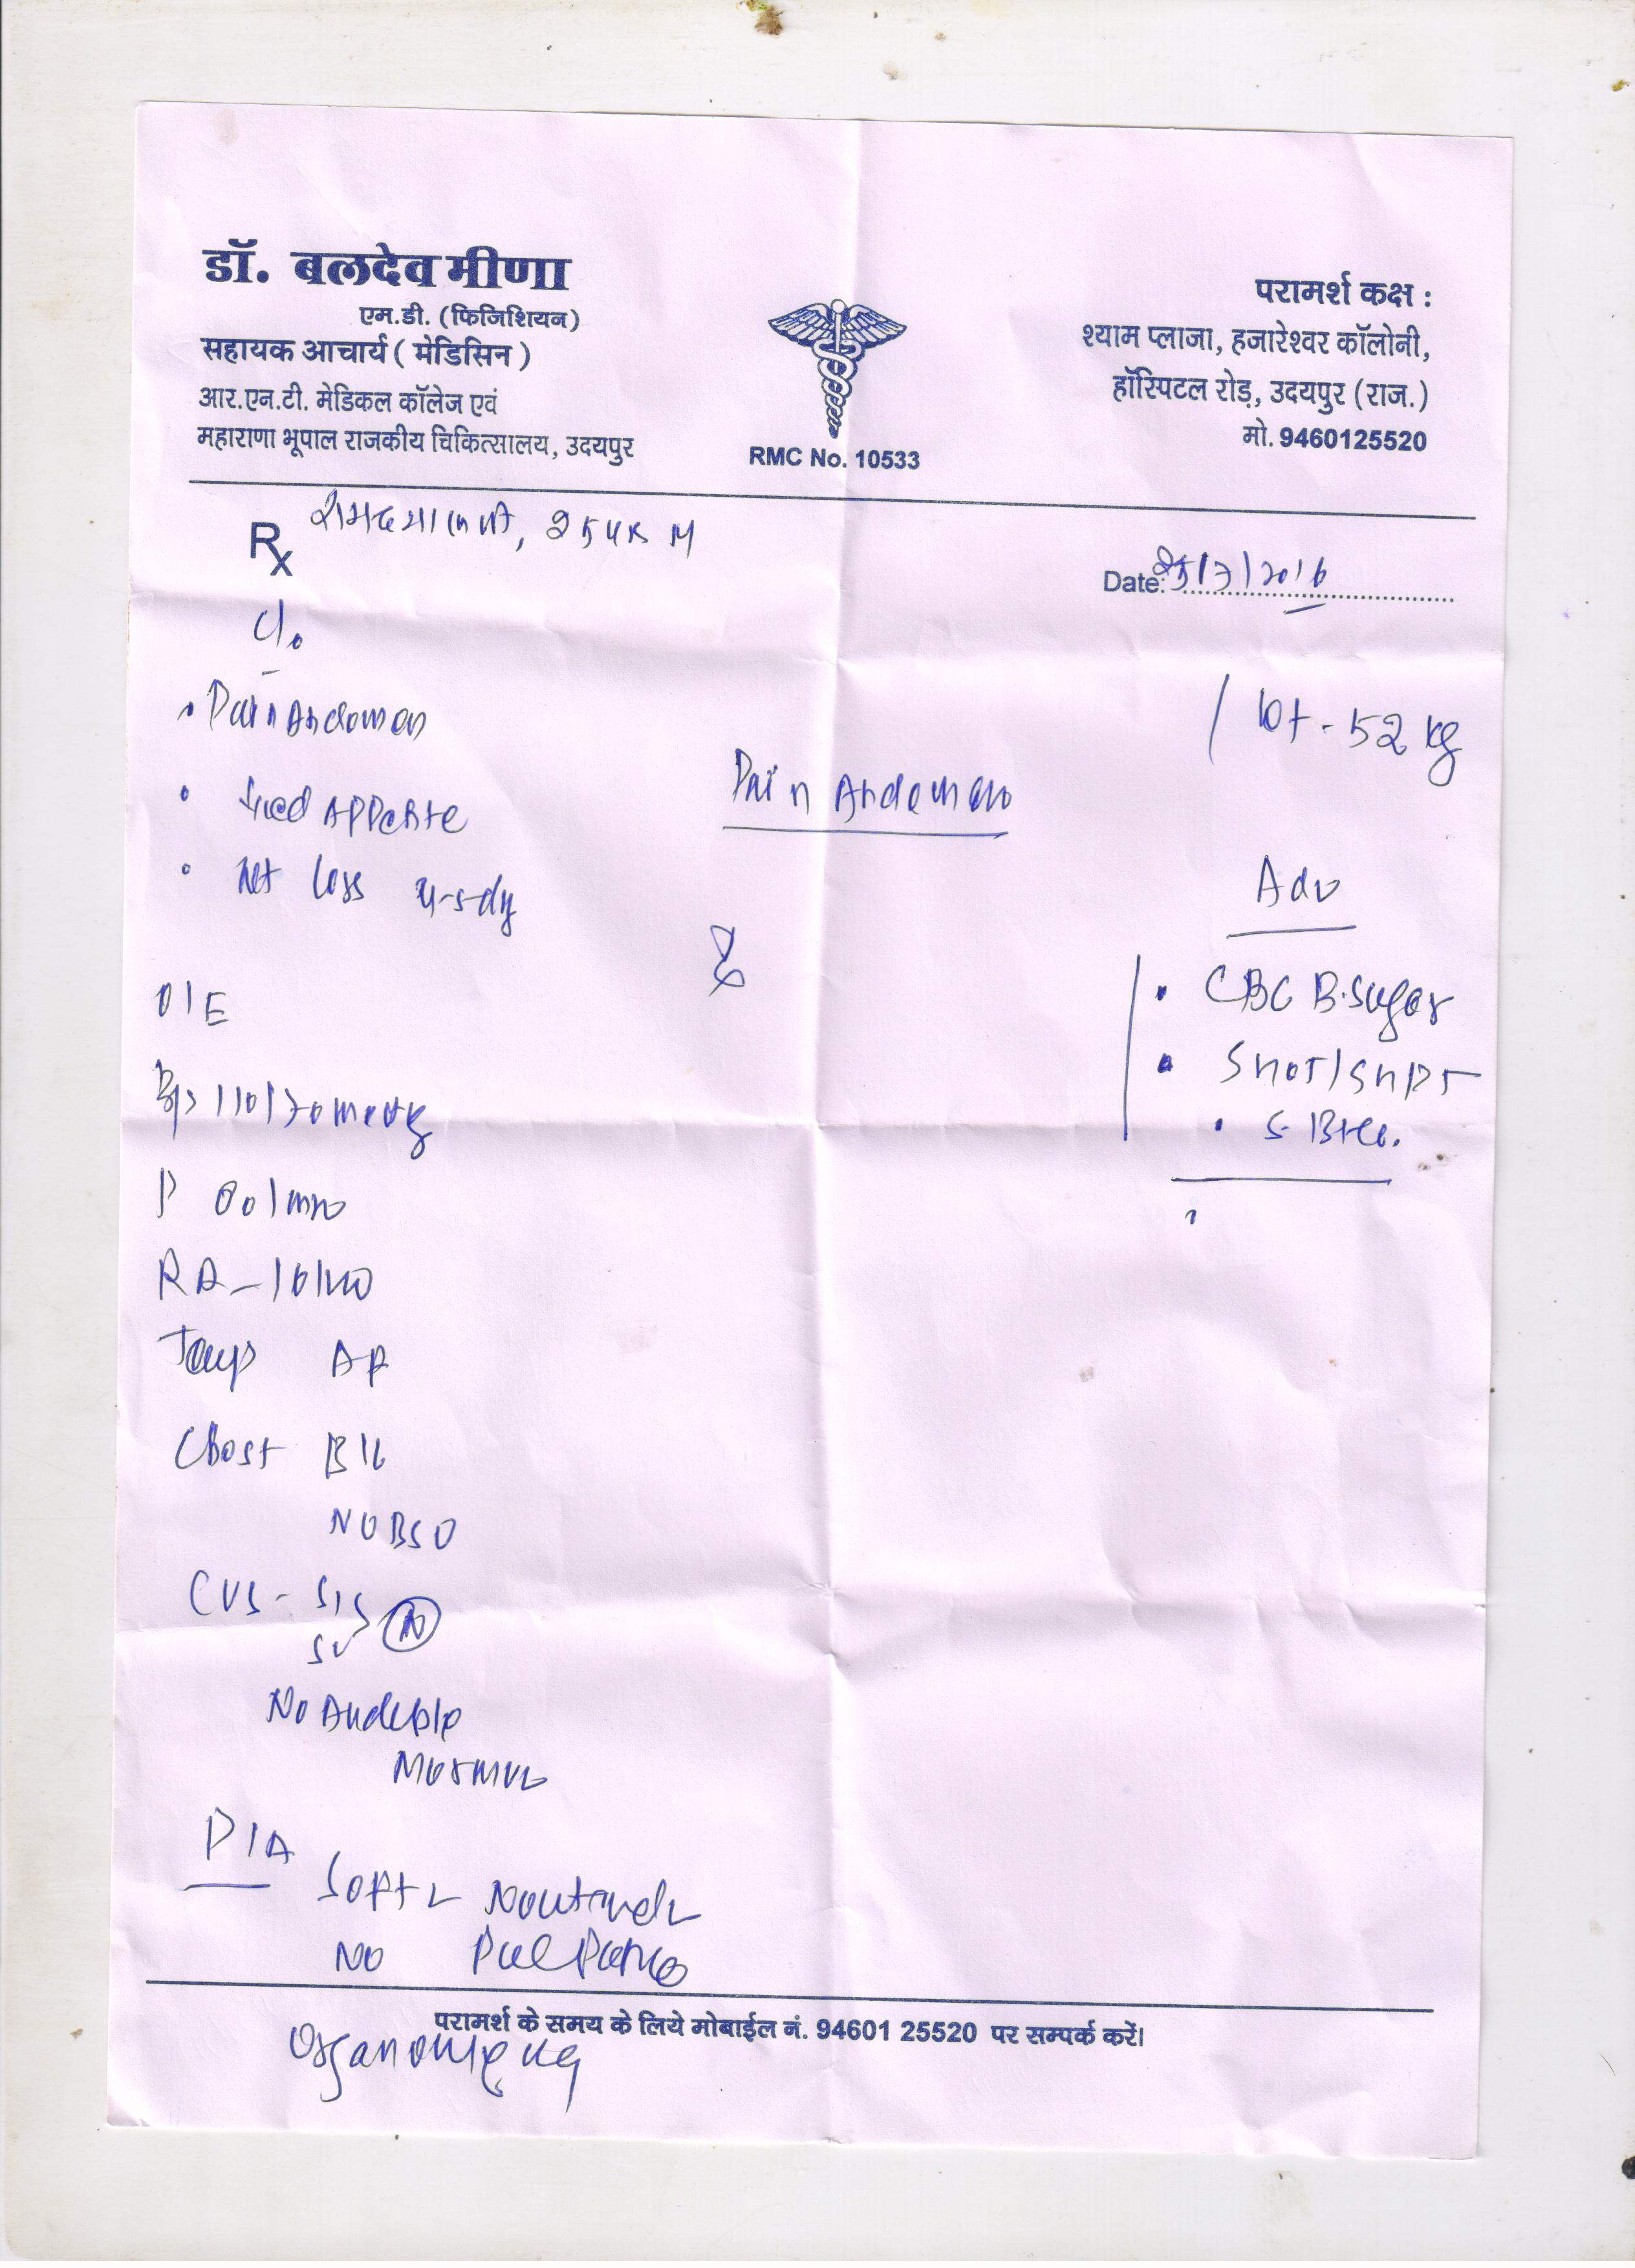 डॉ. बलदेव मीणा
एम.डी. (फिजिशियन)
सहायक आचार्य ( मेडिसिन )
आर.एन.टी. मेडिकल कॉलेज एवं
महाराणा भूपाल राजकीय चिकित्सालय, उदयपुर
RMC No. 10533
परामर्श कक्ष :
श्याम प्लाजा, हजारेश्वर कॉलोनी,
हॉस्पिटल रोड़, उदयपुर (राज.)
मो. 9460125520
Rx
Date: 25/7/2016
C/o
• Pain Abdomen
• Appetite
• Wt loss 4-5 dy
Wt - 52 kg
Pain Abdomen
Adv
• CBC B.Sugar
• SGOT/SGPT
• S.
O/E
BP 110/70 mmHg
P 80/min
RR - 16/min
Temp AF
Chest B/L
CVS - S1 S2 N
No Audible
Murmur
P/A
Soft, Nontender
NO Palpable
Organomegaly
परामर्श के समय के लिये मोबाईल नं. 94601 25520 पर सम्पर्क करें।